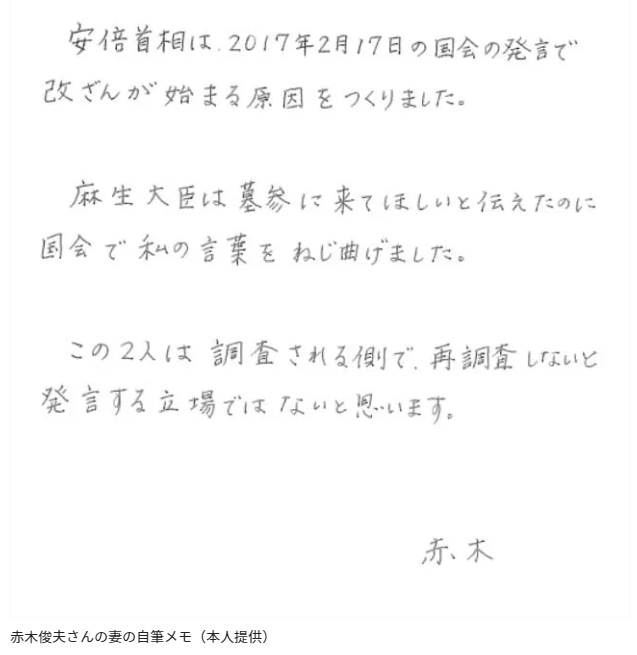 安倍首相は、2017年2月17日の国会の発言で
改ざんが始まる原因をつくりました。
麻生大臣は墓参に来てほしいと伝えたのに
国会で私の言葉をねじ曲げました。
この2人は調査される側で、再調査しないと
発言する立場ではないと思います。
赤木
赤木俊夫さんの妻の自筆メモ（本人提供）